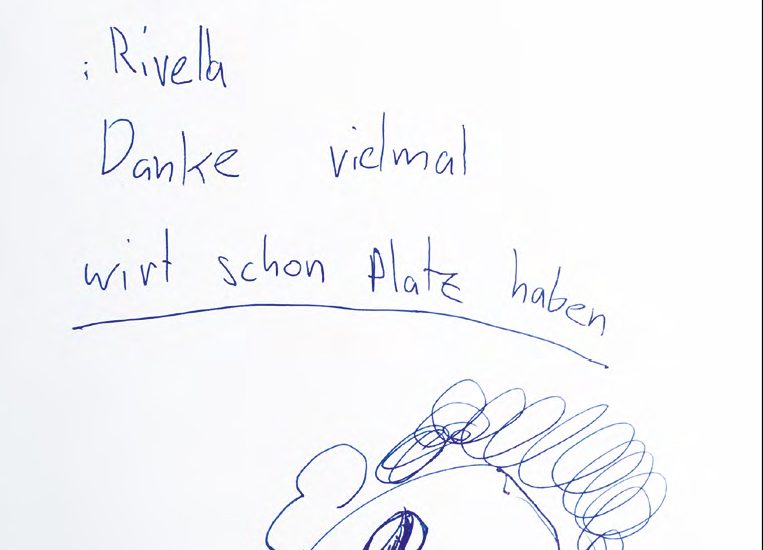 : Rivella
Danke vielmal
wirt schon Platz haben